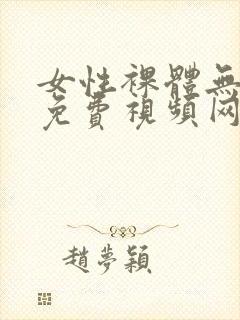 女性裸體無
免費視頻网
趙夢穎